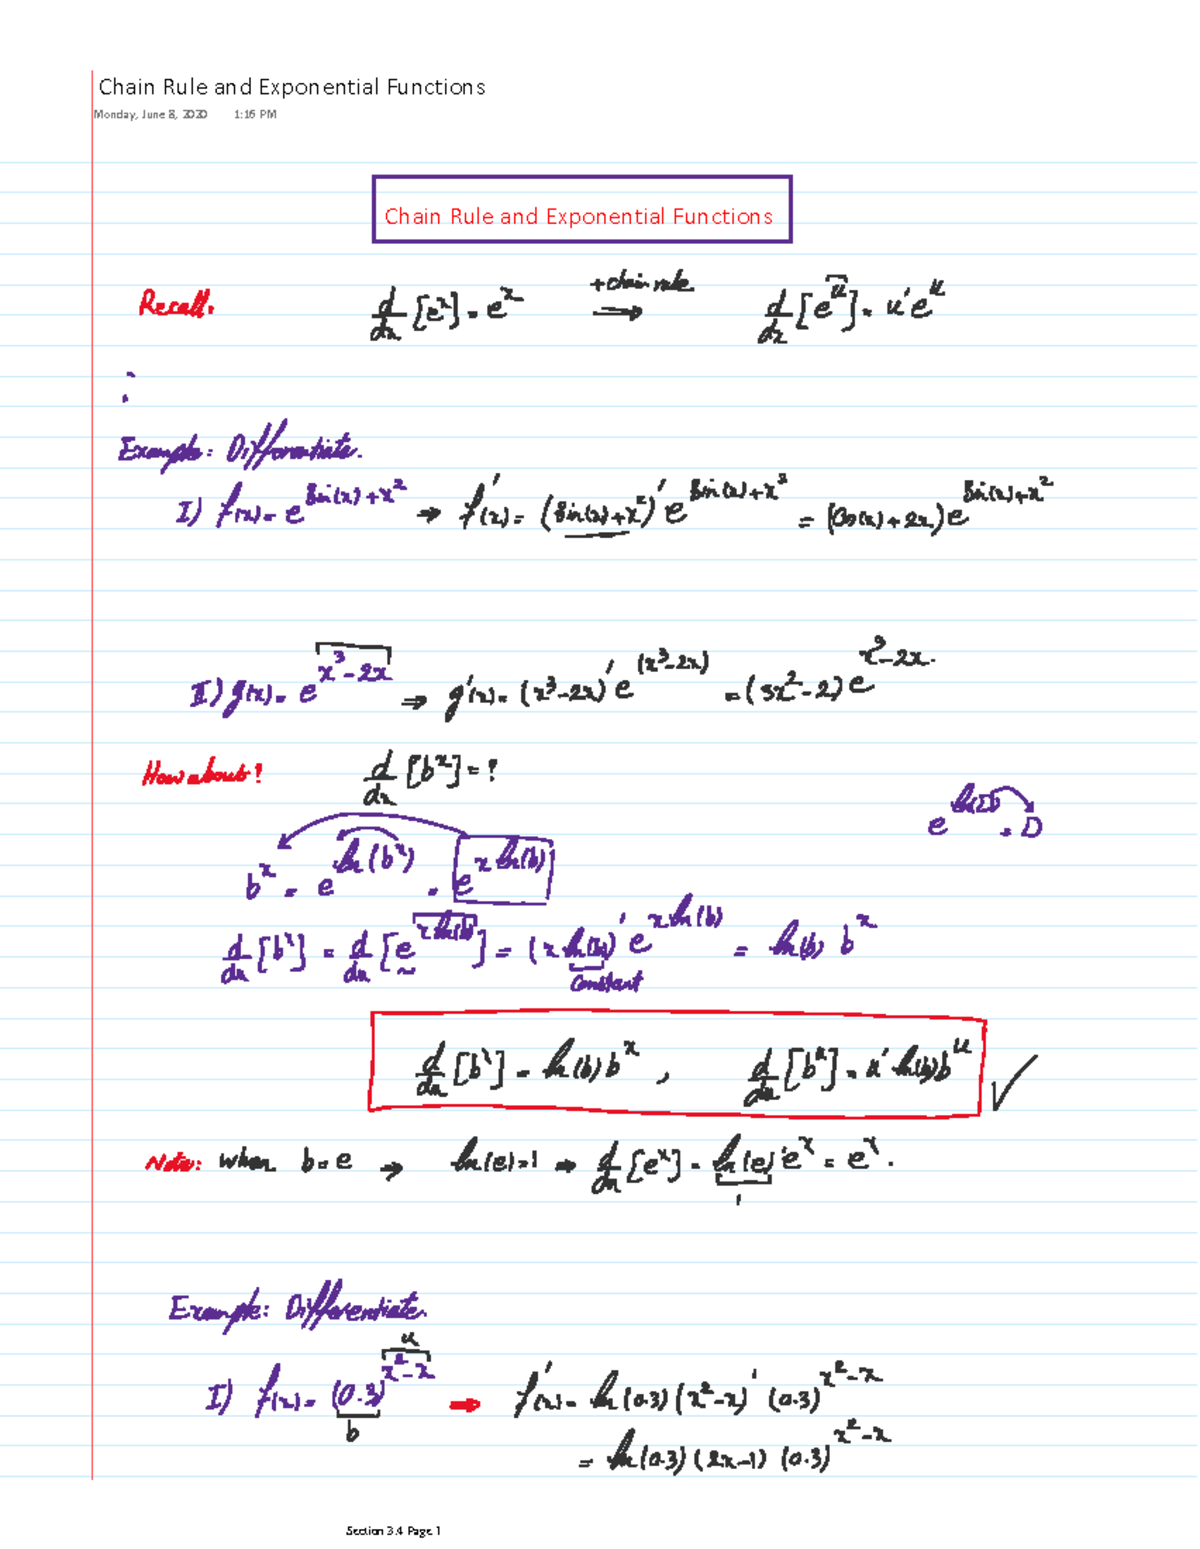 Chain Rule and Exponential Functions
Monday, June 8, 2020 1:16 PM
Chain Rule and Exponential Functions
Recall: d/dx [e^x] = e^x +chain rule ⟹ d/dx [e^u] = u' e^u
:
Example: Differentiate.
I) f(x) = e^(Sin(x)+x^2) → f'(x) = (Sin(x)+x^2)' e^(Sin(x)+x^2) = (Cos(x)+2x) e^(Sin(x)+x^2)
II) g(x) = e^(x^3-2x) ⇒ g'(x) = (x^3-2x)' e^(x^3-2x) = (3x^2-2) e^(x^3-2x).
How about? d/dx [b^x] = ?
e^(ln □) = □
b^x = e^(ln(b^x)) = e^(x ln(b))
d/dx [b^x] = d/dx [e^(x ln(b))] = (x ln(b))' e^(x ln(b)) = ln(b) b^x
Constant
d/dx [b^x] = ln(b) b^x , d/dx [b^u] = u' ln(b) b^u ✓
Note: when b=e → ln(e)=1 ⇒ d/dx [e^x] = ln(e) e^x = e^x.
1
Example: Differentiate.
u
I) f(x) = (0.3)^(x^2-x) ➡ f'(x) = ln(0.3) (x^2-x)' (0.3)^(x^2-x)
b
= ln(0.3) (2x-1) (0.3)^(x^2-x)
Section 3.4 Page 1